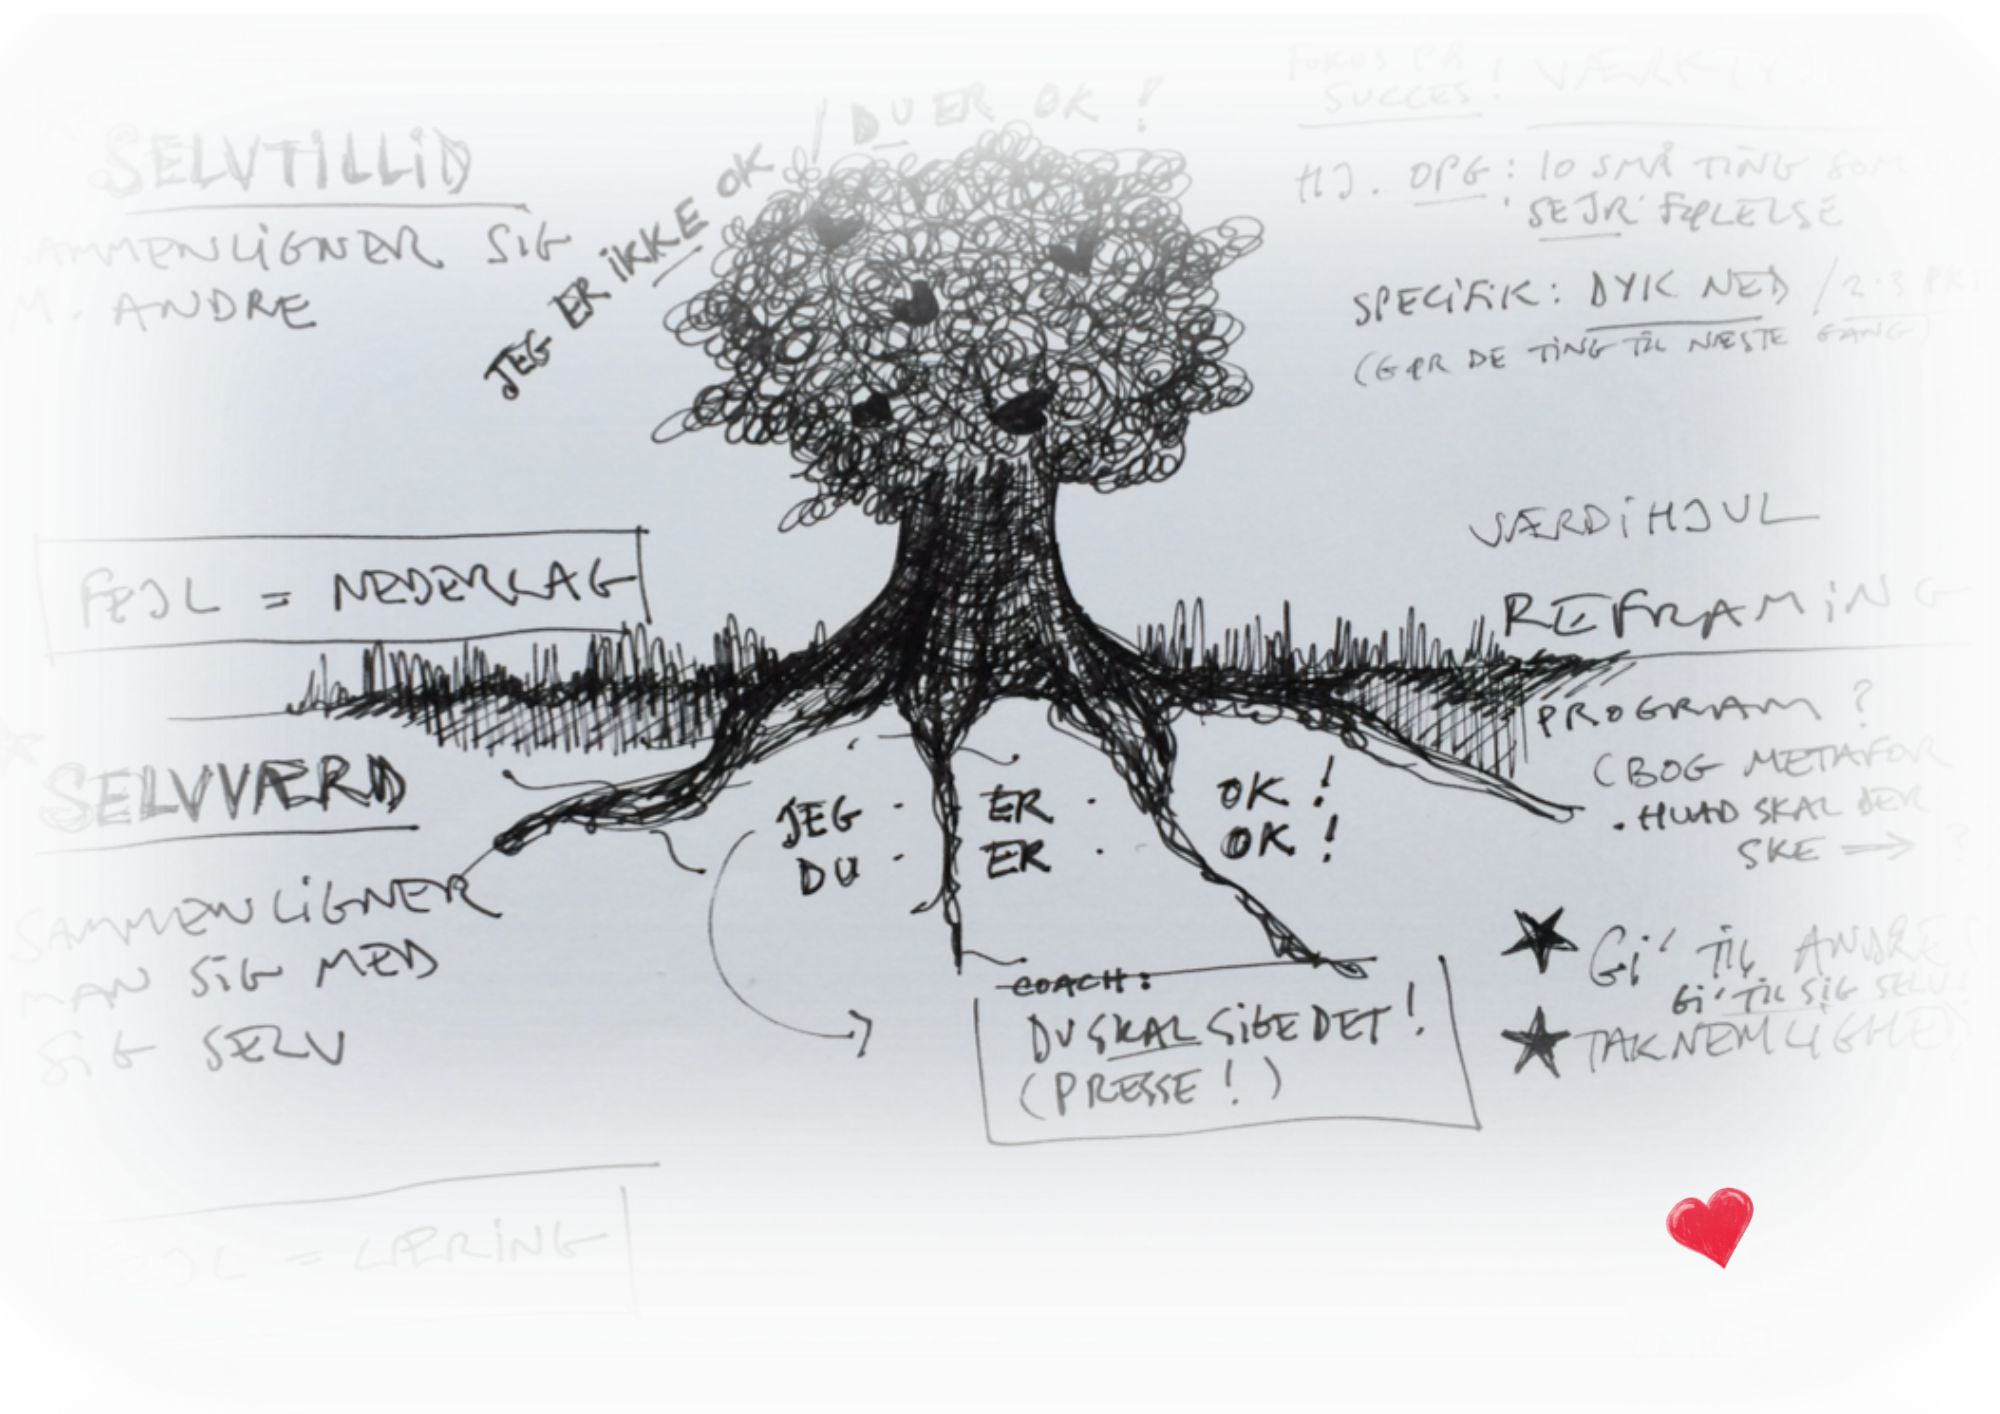 SELVTILLID
SAMMENLIGNER SIG
M. ANDRE
JEG ER IKKE OK / DU ER OK !
FOKUS PÅ
SUCCES !
HJ. OPG : 10 SMÅ TING SOM
SEJR FØLELSE
SPECIFIK : DYK NED / 2-3 PKT
(GØR DE TING TIL NÆSTE GANG)
FEJL = NEDERLAG
VÆRDIHJUL
REFRAMING
SELVVÆRD
SAMMENLIGNER
MAN SIG MED
SIG SELV
JEG · ER · OK !
DU · ER · OK !
COACH :
DU SKAL SIGE DET !
(PRESSE ! )
PROGRAM ?
(BOG METAFOR
. HVAD SKAL DER
SKE → ?
★ GI' TIL ANDRE
GI' TIL SIG SELV
★ TAKNEMLIGHED
FEJL = LÆRING